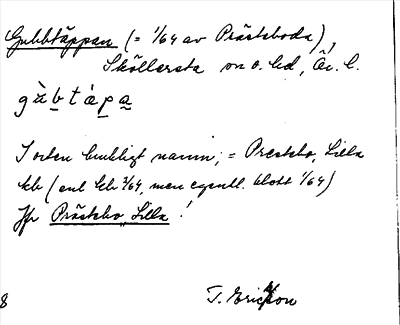 Gubbtäppan (= 1/64 av Prästsboda),
Sköllersta sn o. hd, Ör. l.
gùbtápa
I orten brukligt namn; = Prestbo, Lilla
kb (enl. kb 3/64, men egentl. blott 1/64)
Jfr Prästbo, Lilla!
8 T. Ericsson